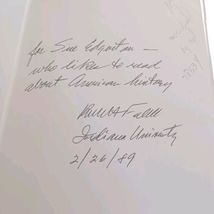 for Sue Edgerton —
who likes to read
about American history
Indiana University
2/26/89